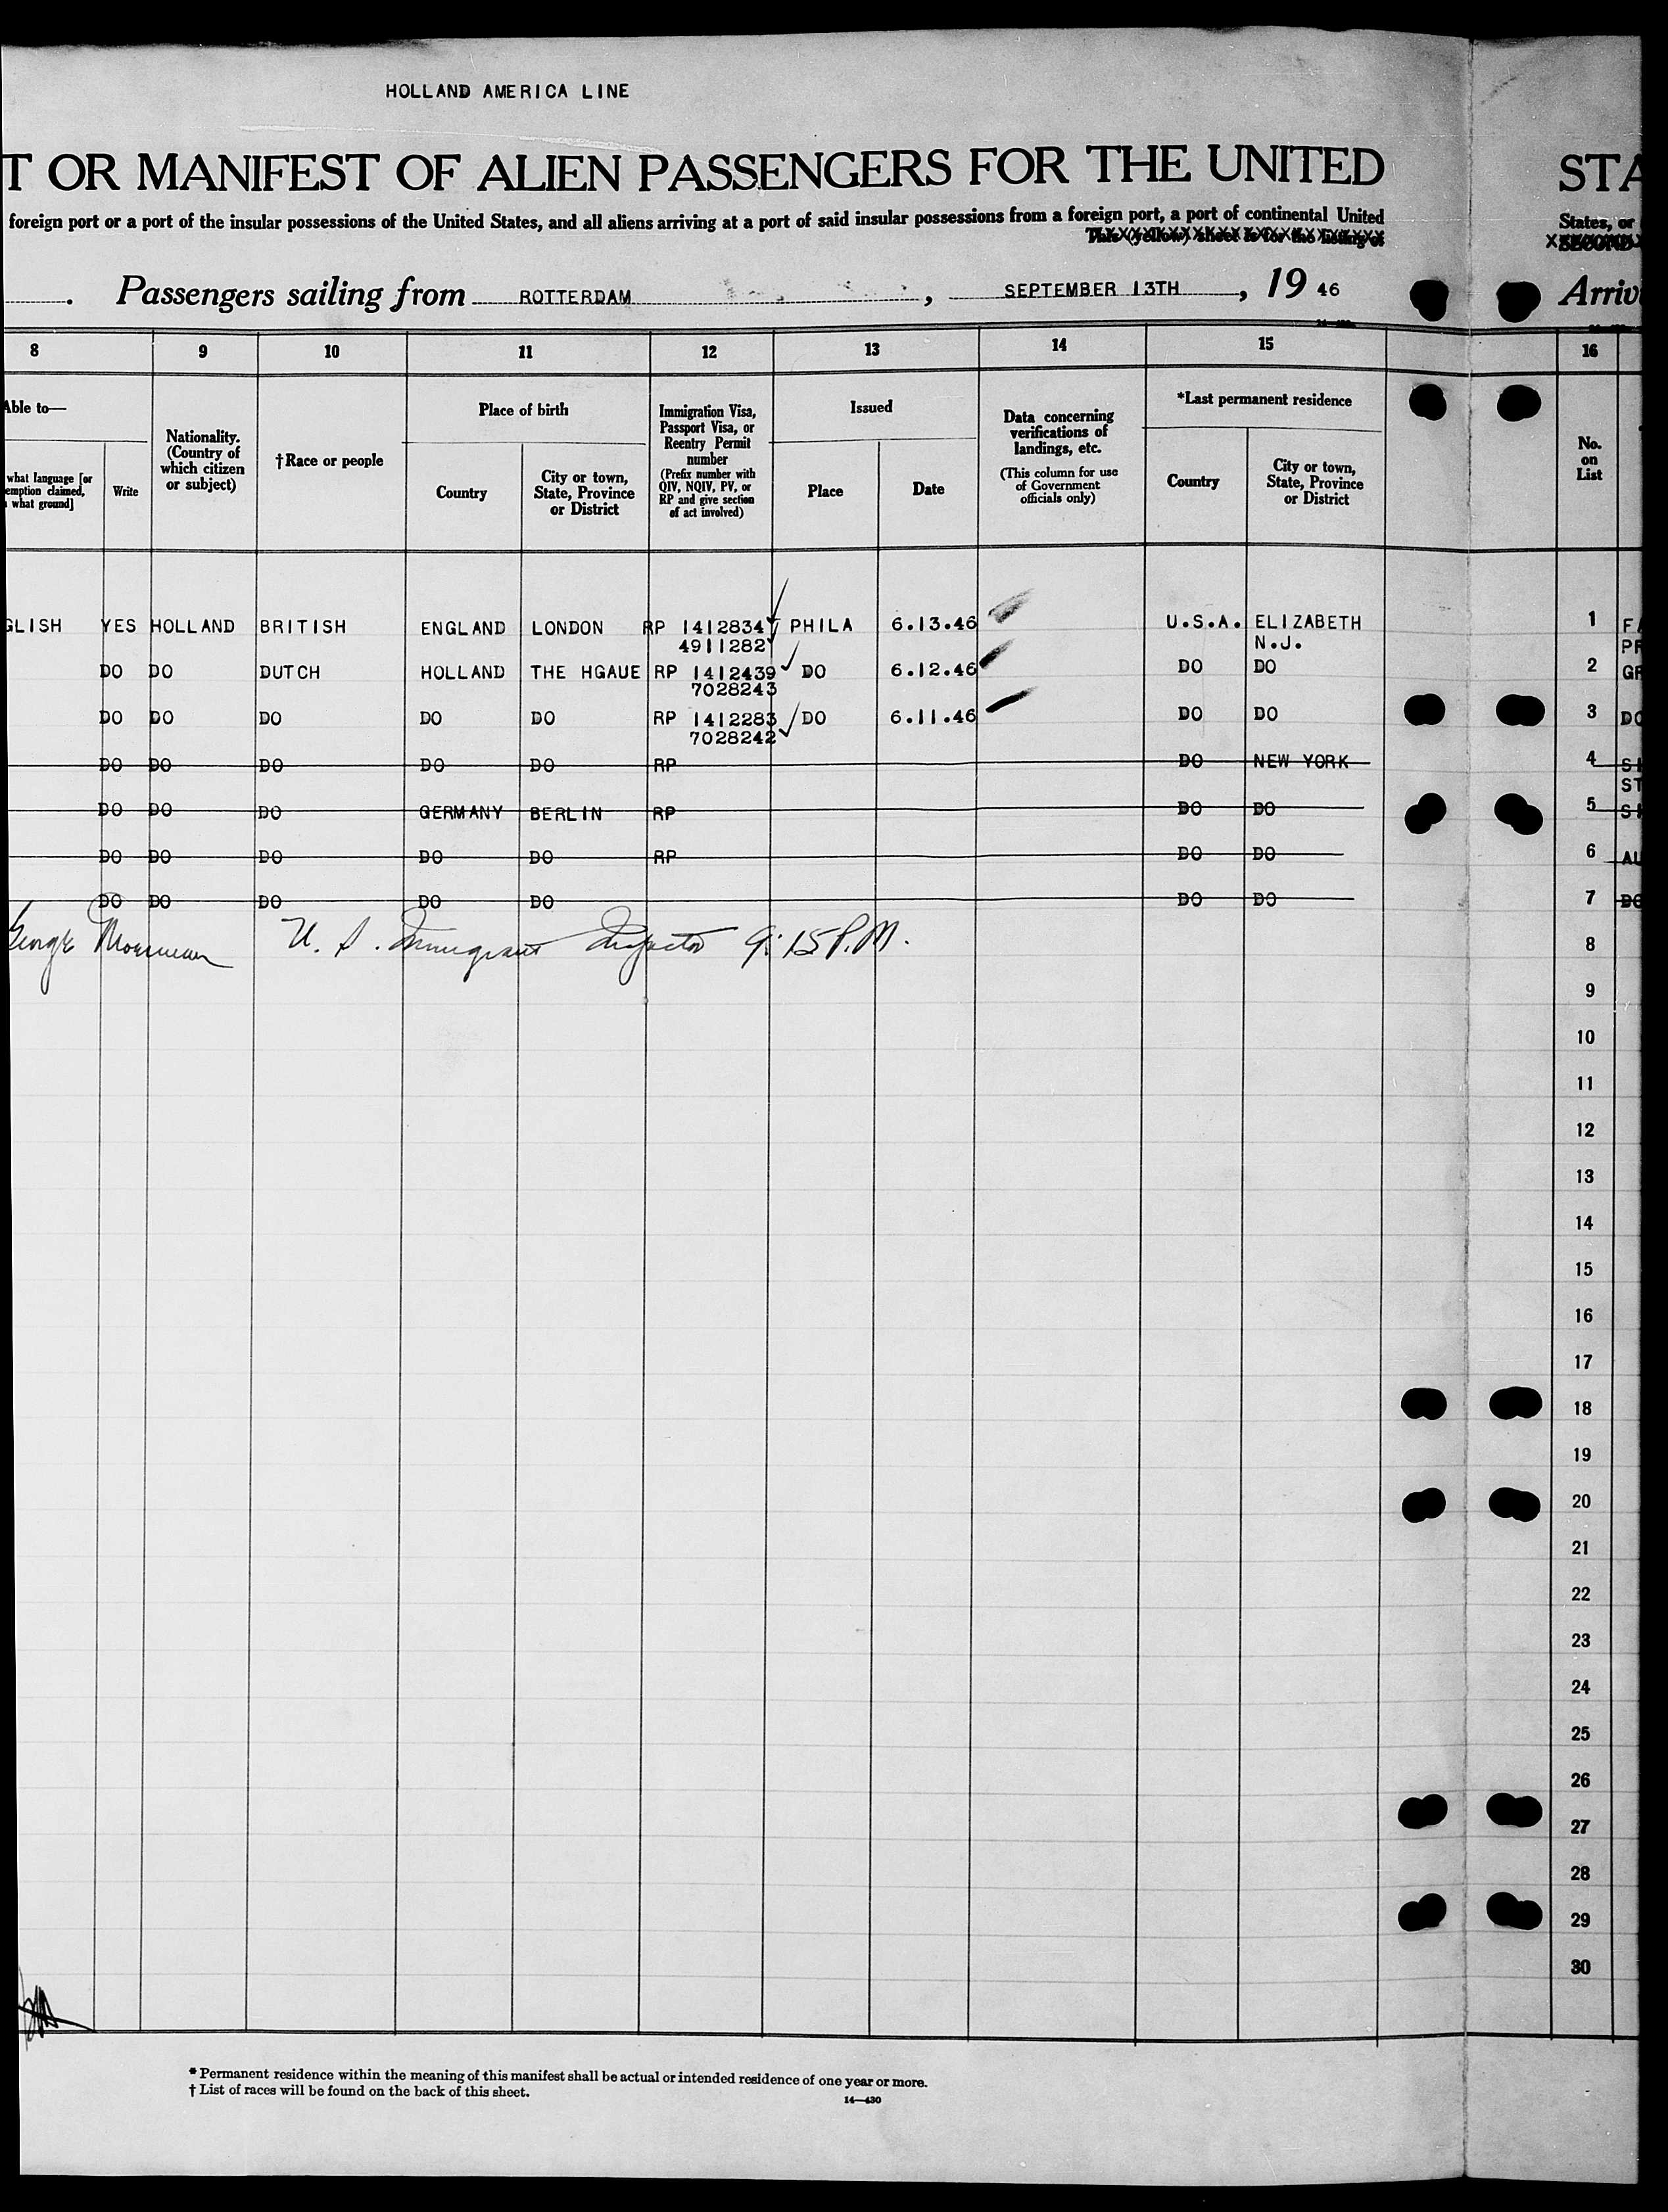 HOLLAND AMERICA LINE
T OR MANIFEST OF ALIEN PASSENGERS FOR THE UNITED STA
foreign port or a port of the insular possessions of the United States, and all aliens arriving at a port of said insular possessions from a foreign port, a port of continental United States, or
This (yellow) sheet is for the listing of SECOND
. Passengers sailing from ROTTERDAM, SEPTEMBER 13TH, 19 46 Arriv
8 9 10 11 12 13 14 15 16
Able to— Place of birth Issued *Last permanent residence
what language [or
emption claimed,
what ground]
Write
Nationality.
(Country of
which citizen
or subject)
†Race or people
Country
City or town,
State, Province
or District
Immigration Visa,
Passport Visa, or
Reentry Permit
number
(Prefix number with
QIV, NQIV, PV, or
RP and give section
of act involved)
Place
Date
Data concerning
verifications of
landings, etc.
(This column for use
of Government
officials only)
Country
City or town,
State, Province
or District
No.
on
List
GLISH YES HOLLAND BRITISH ENGLAND LONDON RP 1412834 PHILA 6.13.46 U.S.A. ELIZABETH 1 F
4911282 N.J. PR
DO DO DUTCH HOLLAND THE HGAUE RP 1412439 DO 6.12.46 DO DO 2 GR
7028243
DO DO DO DO DO RP 1412283 DO 6.11.46 DO DO 3 DO
7028242
DO DO DO DO DO RP DO NEW YORK 4 S
ST
DO DO DO GERMANY BERLIN RP DO DO 5 S
DO DO DO DO DO RP DO DO 6 AL
DO DO DO DO DO DO DO 7 DO
George U. S. Immigrant Inspector 9:15 P.M. 8
9
10
11
12
13
14
15
16
17
18
19
20
21
22
23
24
25
26
27
28
29
30
* Permanent residence within the meaning of this manifest shall be actual or intended residence of one year or more.
† List of races will be found on the back of this sheet.
14—430